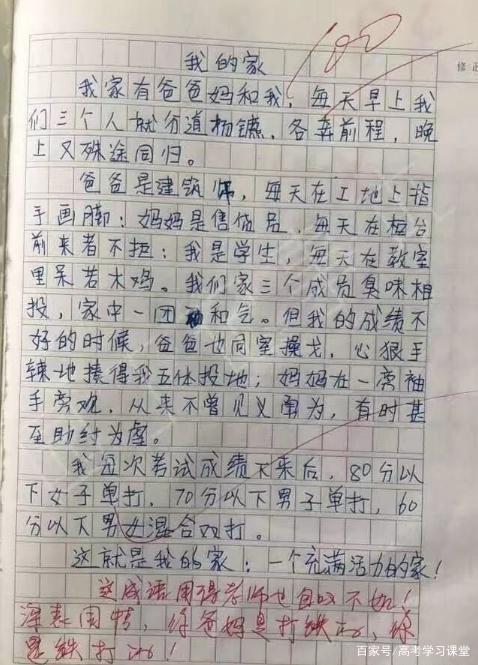 100
修正
我的家
我家有爸爸妈和我，每天早上我
们三个人就分道扬镳，各奔前程，晚
上又殊途同归。
爸爸是建筑师，每天在工地上指
手画脚；妈妈是售货员，每天在柜台
前来者不拒；我是学生，每天在教室
里呆若木鸡。我们家三个成员臭味相
投，家中一团和气。但我的成绩不
好的时候，爸爸也同室操戈，心狠手
辣地揍得我五体投地；妈妈在一高袖
手旁观，从来不曾见义勇为，有时甚
至助纣为虐。
我每次考试成绩下来后，80分以
下女子单打，70分以下男子单打，60
分以下男女混合双打。
这就是我的家：一个充满活力的家！
这成语用得老师也自叹不如！
深表同情，你爸妈是打铁的，你
是铁打的！
百家号/高考学习课堂